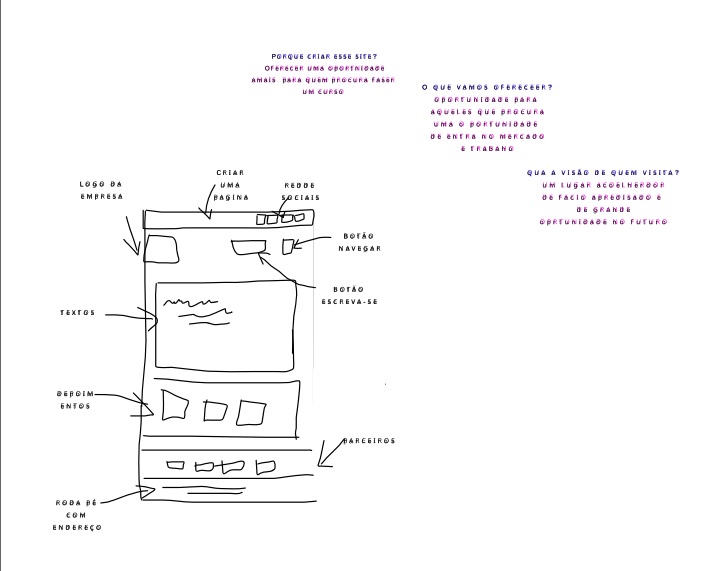 PORQUE CRIAR ESSE SITE?
OFERECER UMA OPORTNIDADE
AMAIS PARA QUEM PROCURA FASER
UM CURSO
O QUE VAMOS OFERECEER?
OPORTUNIDADE PARA
AQUELES QUE PROCURA
UMA O PORTUNIDADE
DE ENTRA NO MERCADO
E TRABANO
QUA A VISÃO DE QUEM VISITA?
UM LUGAR ACOELHERDOR
DE FACIO APREDISADO E
DE GRANDE
OPRTUNIDADE NO FUTURO
LOGO DA
EMPRESA
CRIAR
UMA
PAGINA
REDDE
SOCIAIS
BOTÃO
NAVEGAR
BOTÃO
ESCREVA-SE
TEXTOS
DEPOIM
ENTOS
PARCEIROS
RODA PÉ
COM
ENDEREÇO